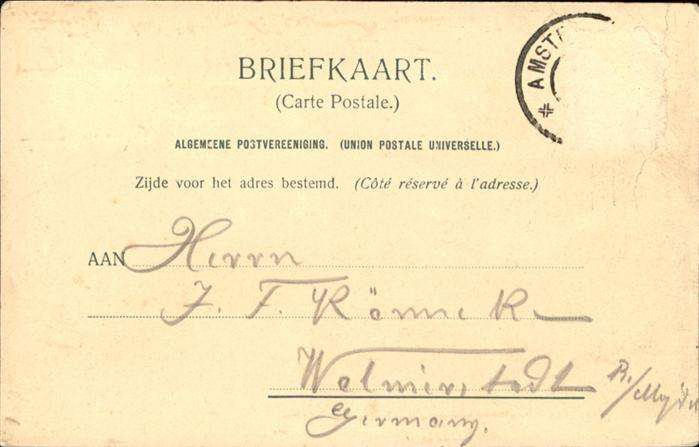 BRIEFKAART.
(Carte Postale.)
AMST
ALGEMEENE POSTVEREENIGING. (UNION POSTALE UNIVERSELLE.)
Zijde voor het adres bestemd. (Côté réservé à l'adresse.)
AAN Herrn
J. F. Könneke
Wolmirstedt
Germany.